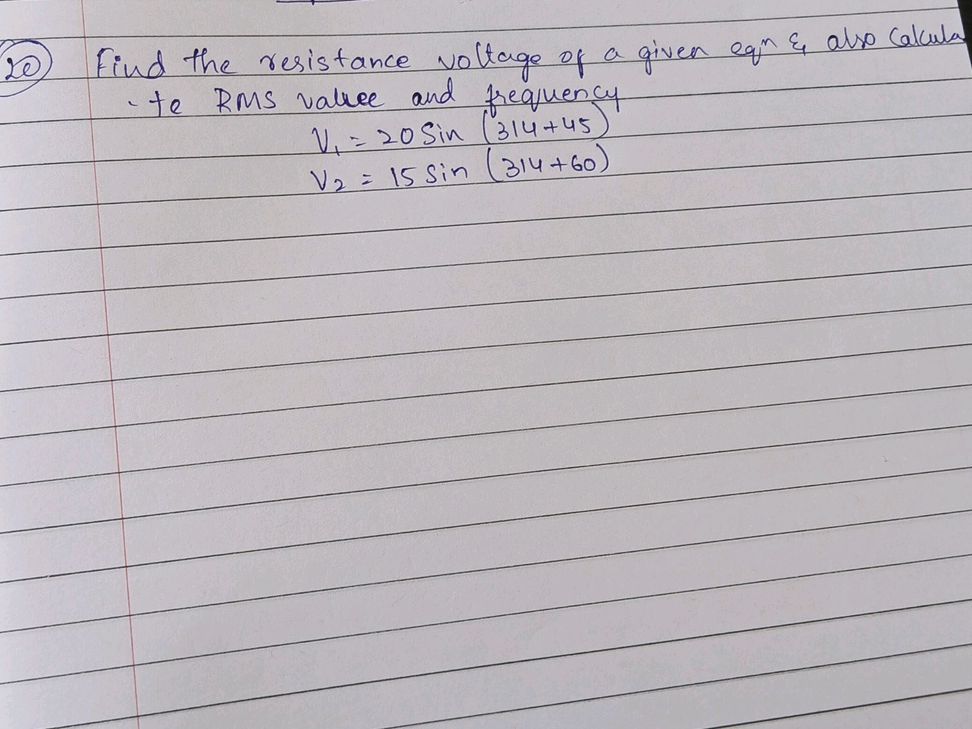 20 Find the resistance voltage of a given eqn & also Calcula
-te RMS valuee and frequency
V1 = 20 Sin (314+45)
V2 = 15 Sin (314+60)